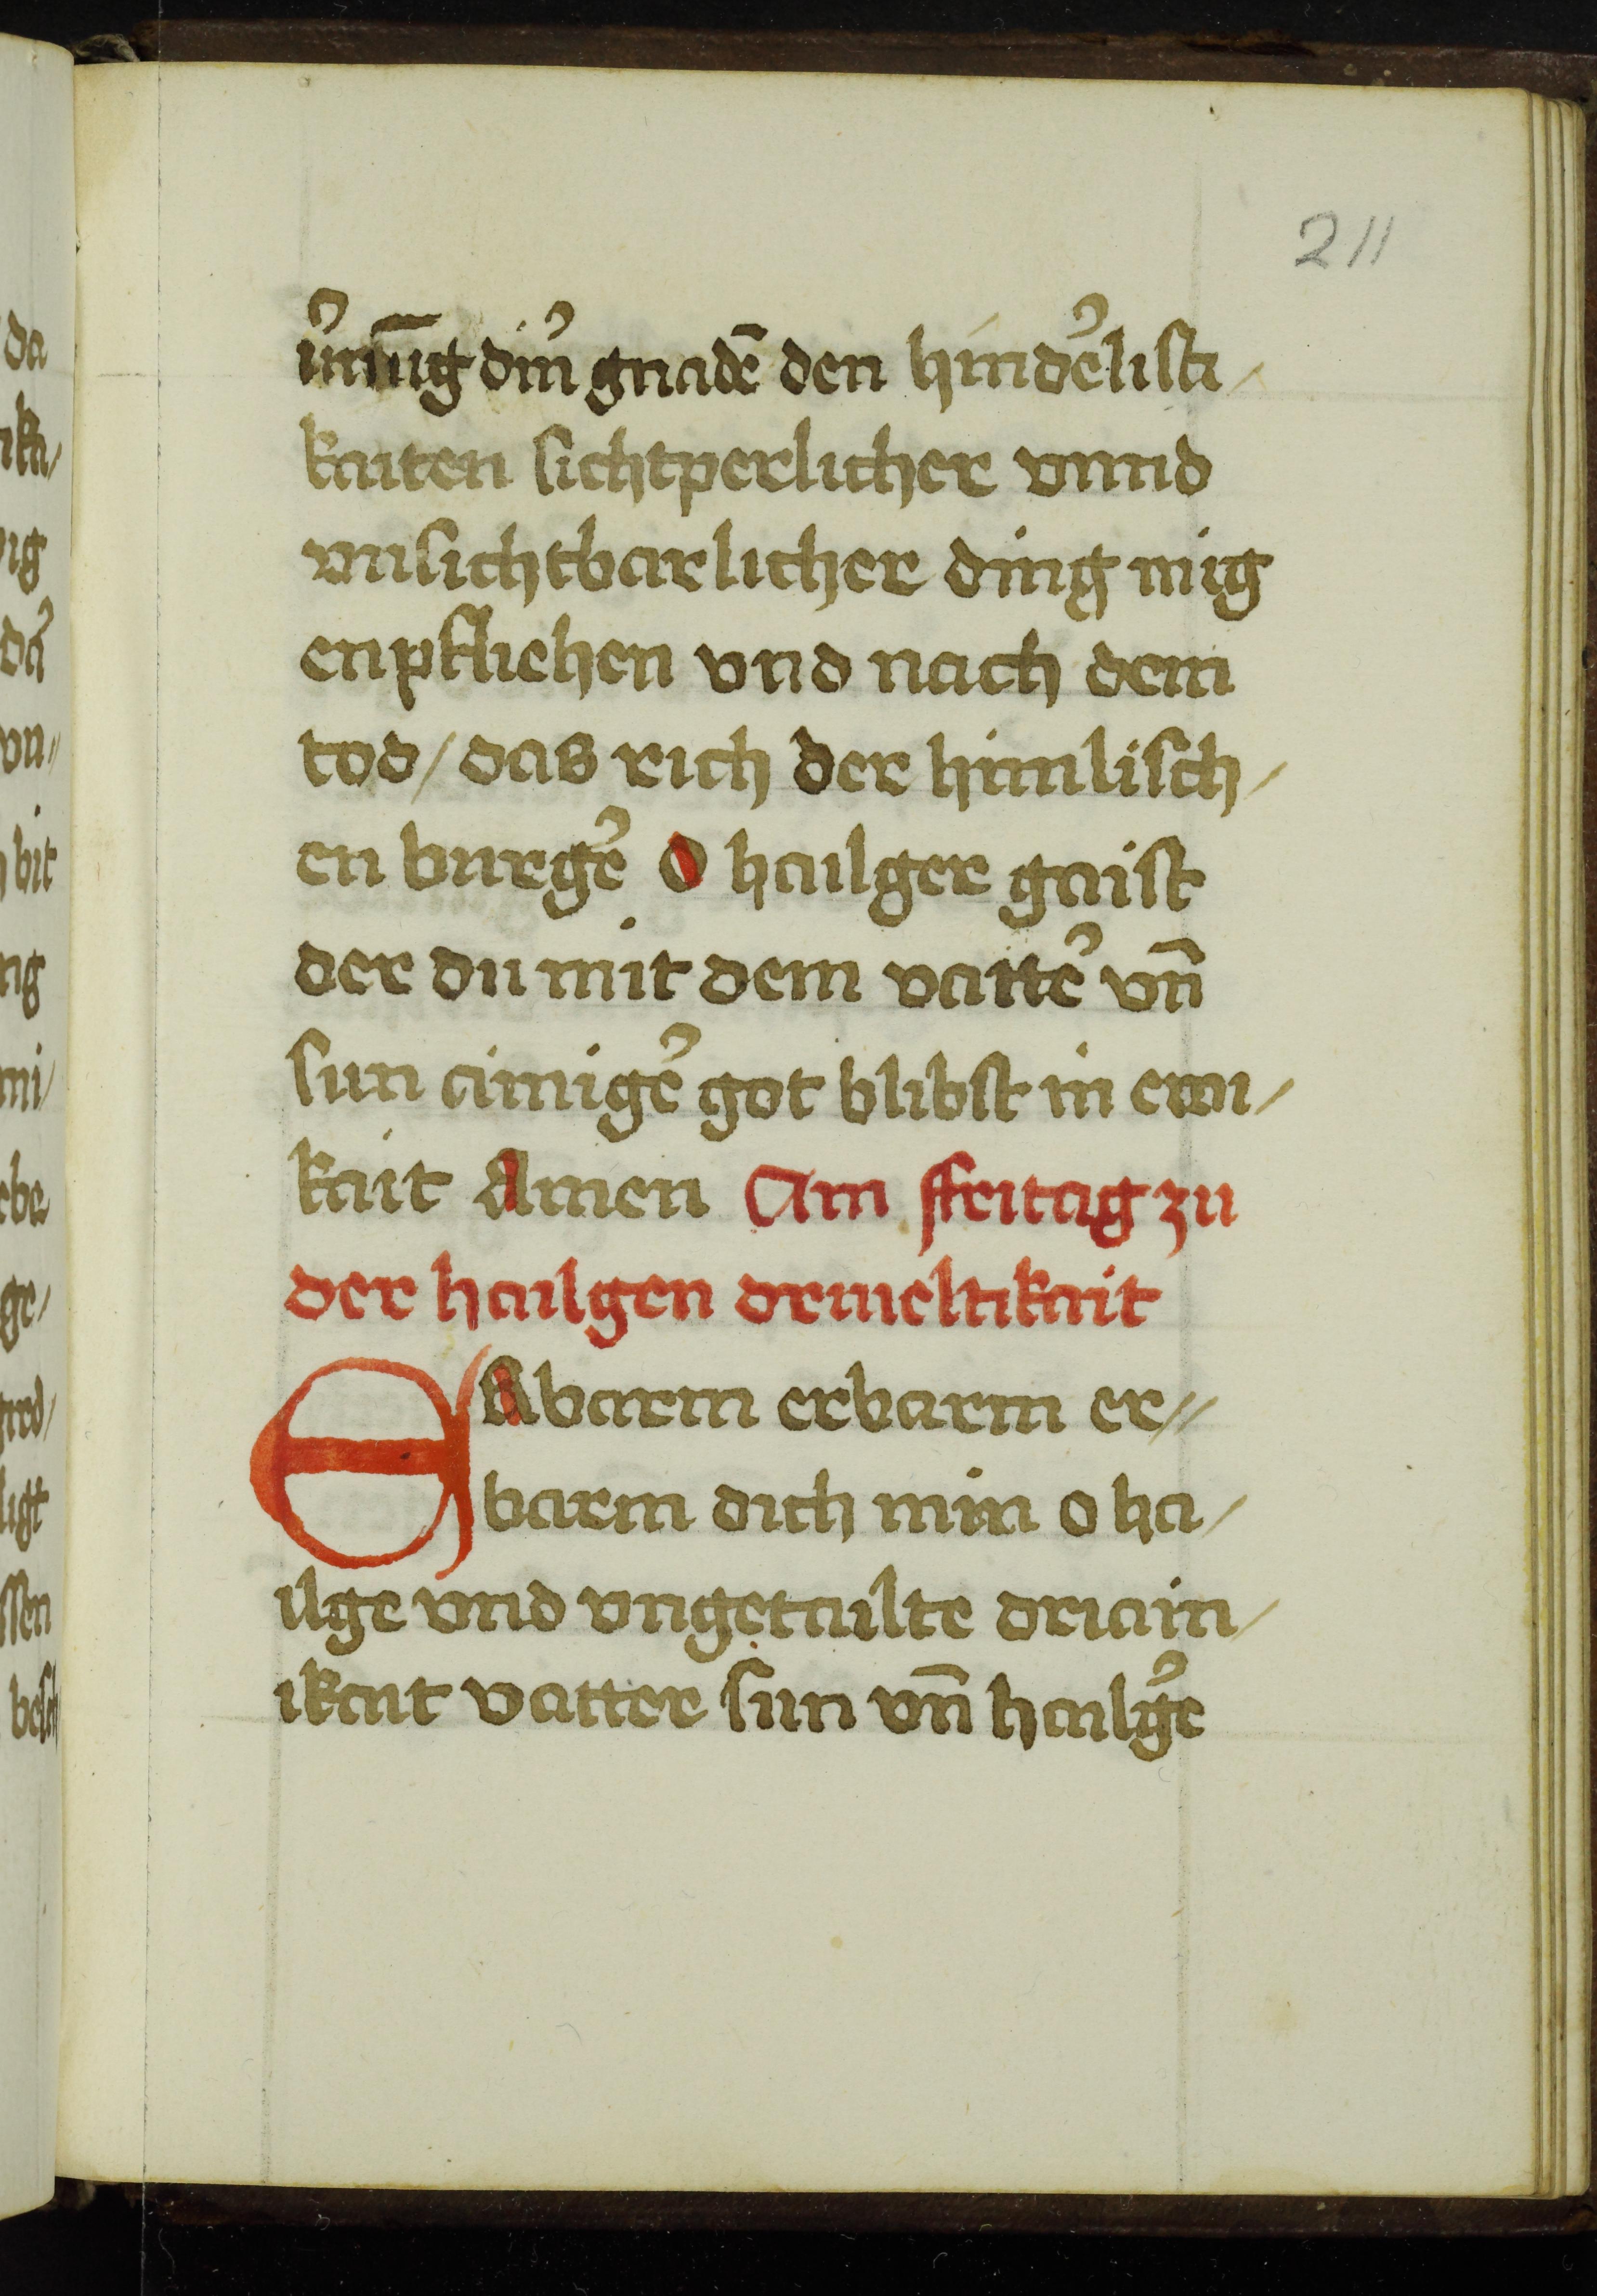 211
dinˀ gnadē den hindeˀlisti/
kaiten sichtperlicher vnnd
vnsichtbarlicher ding mig
enpfliehen vnd nach dem
tod/ das rich der himlisch/
en burgeˀ O hailger gaist
der du mit dem vatteˀ vn̄
sun ainigeˀ got blibst in ewi/
kait Amen Am ffritag zu
der hailgen driueltikait
EAbarm erbarm er//
barm dich min o ha/
ilge vnd vngetailte driain/
ikait vatter sun vn̄ hailgˀe